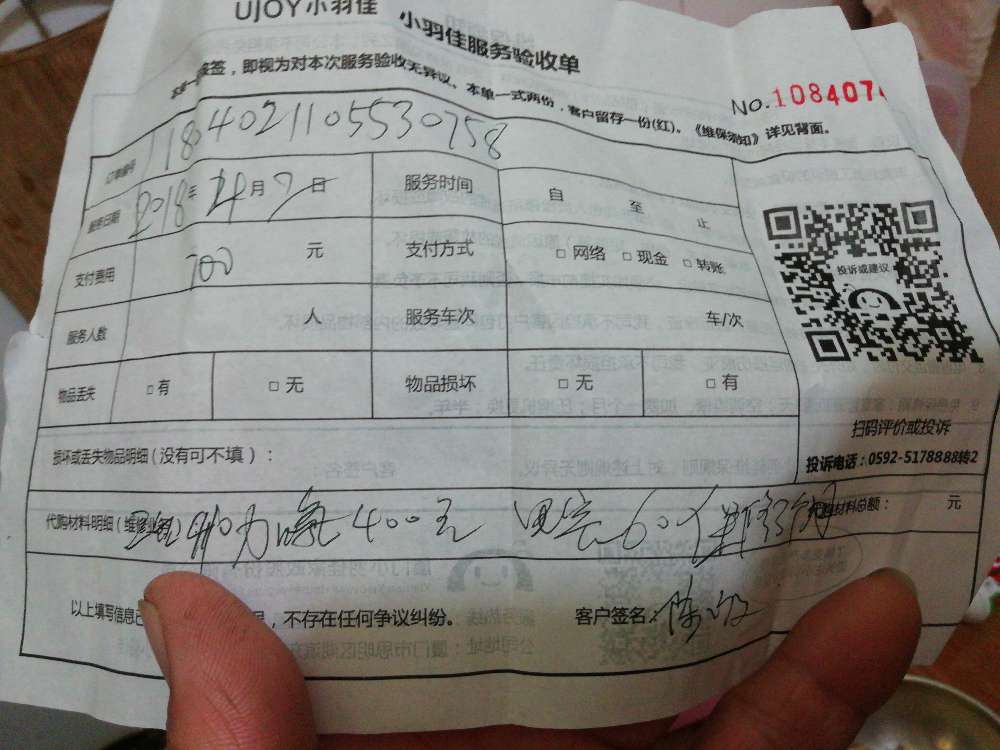 UJOY小羽佳
小羽佳服务验收单
签，即视为对本次服务验收无异议。本单一式两份，客户留存一份(红)。《维保须知》详见背面。
NO.108407
订单编号 1184021105530758
服务日期 2018年 4月7日 服务时间 自 至 止
支付费用 700 元 支付方式 □网络 □现金 □转账
服务人数 人 服务车次 车/次
物品丢失 □有 □无 物品损坏 □无 □有
投诉或建议
扫码评价或投诉
投诉电话：0592-5178888转2
损坏或丢失物品明细（没有可不填）：
代购材料明细（维修业 加力 400元 60 材料总额： 元
以上填写信息已 ，不存在任何争议纠纷。 客户签名：陈